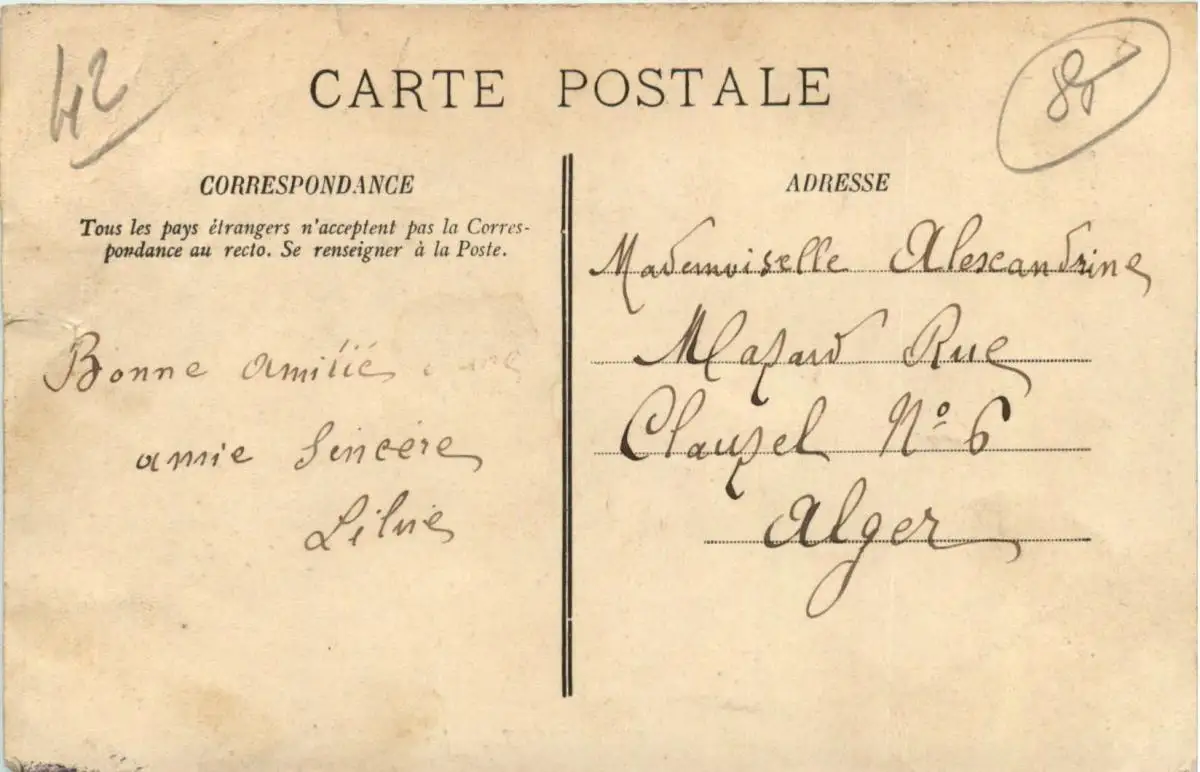 42
85
CARTE POSTALE
CORRESPONDANCE
Tous les pays étrangers n'acceptent pas la Corres-
pondance au recto. Se renseigner à la Poste.
Bonne amitié
amie Sincère
ADRESSE
Mademoiselle Alexandrine
Mazard Rue
Clauzel Nº 6
Alger